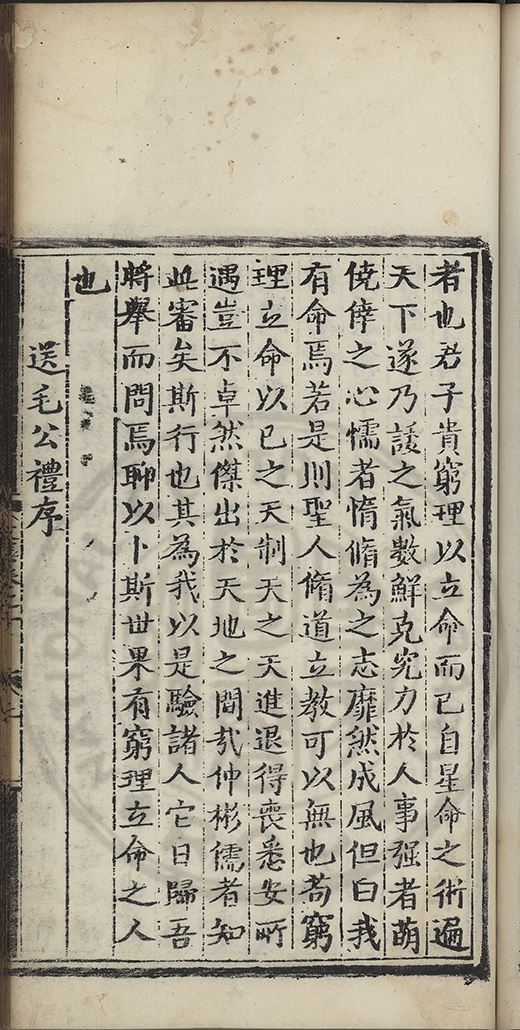 者也君子貴窮理以立命而已自星命之術遍
天下遂乃諉之氣數鮮克究力於人事強者萌
僥倖之心懦者惰脩為之志靡然成風但曰我
有命焉若是則聖人脩道立教可以無也茍窮
理立命以已之天制天之天進退得喪悉安所
遇豈不卓然傑出於天地之間㢤仲彬儒者知
此審矣斯行也其為我以是驗諸人它日歸吾
將舉而問焉聊以卜斯世果有窮理立命之人
也
送毛公禮序